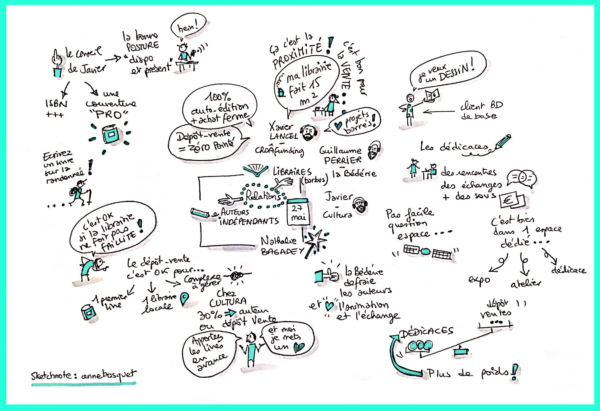 le conseil
de Javier
la bonne
POSTURE
dispo
et présent
hein!
ISBN
+++
une
couverture
"PRO"
Ecrivez
un livre
sur la
randonnée!
c'est OK
si la librairie
ne fait pas
FAILLITE!
Le dépôt-vente
c'est OK pour...
1 premier
livre
1 libraire
locale
Complexe
à gérer
Ça c'est la
PROXIMITÉ!
c'est
bon pour
la
VENTE!
ma librairie
fait 15
m2
100%
auto-édition
+ achat ferme
Dépôt-vente
= Zéro Pointé
projets
barrés!
Xavier
LANCEL
CROAfunding
Guillaume
PERRIER
la Bédérie
LIBRAIRES
(barbes)
Relations
AUTEURS
INDÉPENDANTS
27
mai
Javier
Cultura
Nathalie
BAGADEY
Chez
CULTURA
30% → auteur
ou dépôt Vente
Apportez
les livres
en
avance
et moi
je mets
un
la Bédérie
défraie
les auteurs
et l'animation
et l'échange
je veux
un DESSIN!
client BD
de base
Les dédicaces
des rencontres
des échanges
+ des sous
€
Pas facile
question
espace...
c'est bien
dans 1 espace
dédié...
expo
atelier
dédicace
dépôt
ventes
DÉDICACES
Plus de poids!
Sketchnote : annebosquet